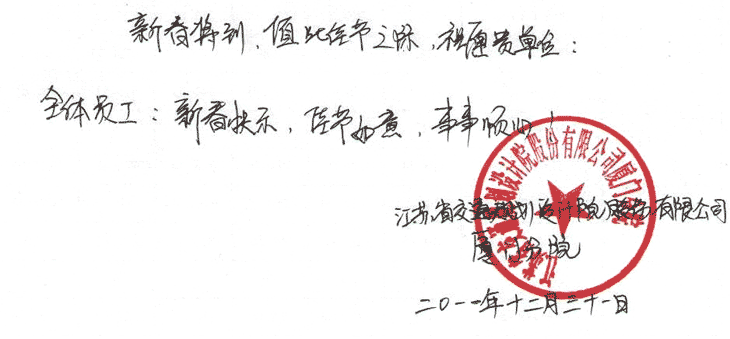 新春将到,值此佳节之际,祝愿贵单位:
全体员工:新春快乐,佳节如意,事事顺心!
江苏省交通规划设计院股份有限公司厦门分院
江苏省交通规划设计院股份有限公司
厦门分院
二〇一一年十二月三十一日